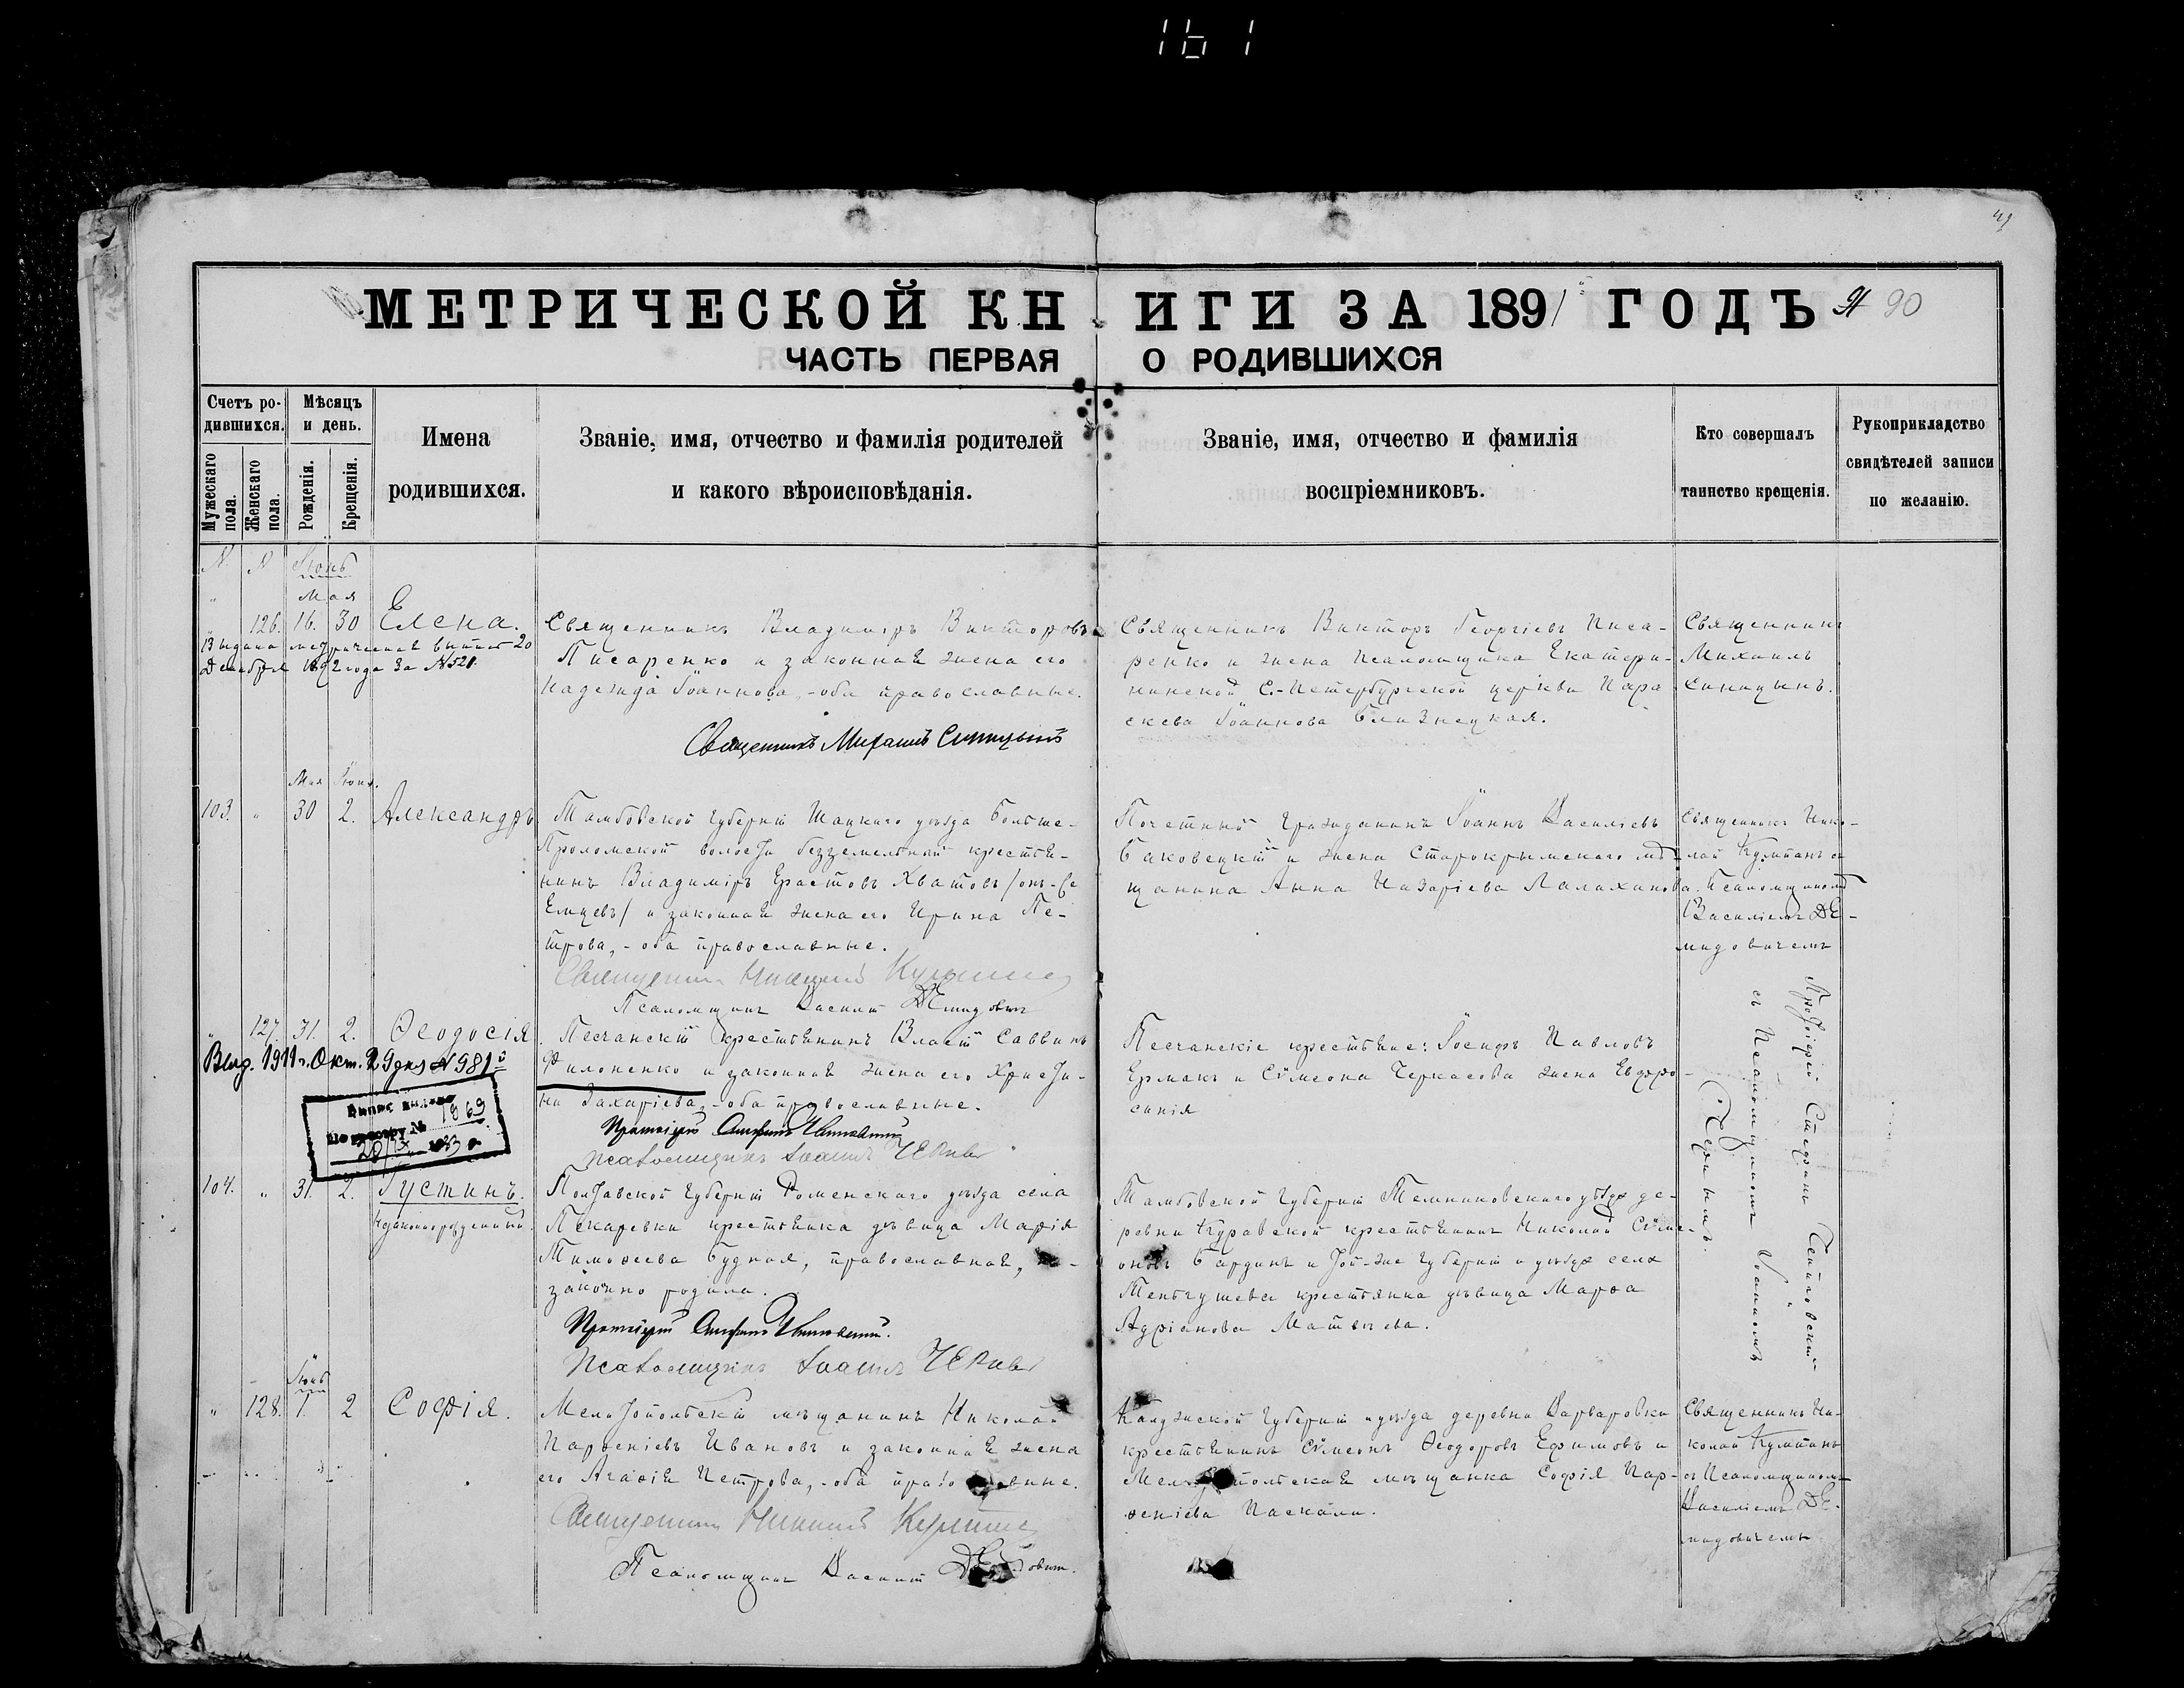 161
49
МЕТРИЧЕСКОЙ КНИГИ ЗА 1891 ГОДЪ 90
ЧАСТЬ ПЕРВАЯ О РОДИВШИХСЯ
Счетъ ро-
дившихся.
Мужескаго пола.
Женскаго пола.
Мѣсяцъ
и день.
Рожденія.
Крещенія.
Имена
родившихся.
Званіе, имя, отчество и фамилія родителей
и какого вѣроисповѣданія.
Званіе, имя, отчество и фамилія
воспріемниковъ.
Кто совершалъ
таинство крещенія.
Рукоприкладство
свидѣтелей записи
по желанію.
N. N Іюнь
Мая
126. 16. 30 Елена.
Выдана метрическая выпись 20
Декабря 1892 года за N 521.
Священникъ Владиміръ Викторовъ
Писаренко и законная жена его
Надежда Іоаннова,-оба православные.
Священникъ Михаилъ Синицынъ
Священникъ Викторъ Георгіевъ Писа-
ренко и жена псаломщика Екатери-
нинской С.-Петербургской церкви Пара
скева Іоаннова Близнецкая.
Священникъ
Михаилъ
Синицынъ.
Мая Іюня.
103. " 30 2. Александръ
Тамбовской губерніи Шацкаго уѣзда Больше-
Проломской волости безземельный крестья-
нинъ Владиміръ Ерастовъ Хватовъ /онъ-же
Емцевъ/ и законная жена его Ирина Пе-
трова,-оба православные.
Священникъ Николай
Псаломщикъ Василій Демидовичъ
Почетный гражданинъ Іоаннъ Василіевъ
Баковецкій и жена Старокрымскаго мѣ-
щанина Анна Назаріева Палаханова.
Священникъ Нико-
лай съ
Псаломщикомъ
Василіемъ Де-
мидовичемъ
" 127. 31. 2. Ѳеодосія
Выд. 1911 г. Окт. 29 дня N 981
Выпис выдано
По реестру № 1969
20/IX 1933 г.
Песчанскій крестьянинъ Власій Саввинъ
Филоненко и законная жена его Христи-
на Захаріева,-оба православные.
Протоіерей Стефанъ
Псаломщикъ Іоаннъ
Песчанскіе крестьяне: Іосифъ Павловъ
Ермакъ и Симеона Черкасова жена Евфро-
синія
Протоіерей Стефанъ
съ Псаломщикомъ Іоанномъ
104. " 31. 2. Іустинъ.
Незаконнорожденный.
Полтавской губерніи Роменскаго уѣзда села
Пекаревки крестьянка дѣвица Марія
Тимоѳеева Будная, православная, не-
законно родила.
Протоіерей Стефанъ
Псаломщикъ Іоаннъ
Тамбовской губерніи Темниковскаго уѣзда де-
ревни крестьянинъ Николай Симе-
оновъ Бардинъ и той-же губерніи и уѣзда села
Теньгушева крестьянка дѣвица Марѳа
Адріанова Матвѣева.
Іюнь
" 128. 1. 2 Софія.
Мелитопольскій мѣщанинъ Николай
Парѳеніевъ Ивановъ и законная жена
его Агаѳія Петрова,-оба православные.
Священникъ Николай
Псаломщикъ Василій Демидовичъ.
Калужской губерніи и уѣзда деревни Варваровки
крестьянинъ Симеонъ Ѳеодоровъ Ефимовъ и
Мелитопольская мѣщанка Софія Пар-
ѳеніева Паскали.
Священникъ Ни-
колай
съ Псаломщикомъ
Василіемъ Де-
мидовичемъ